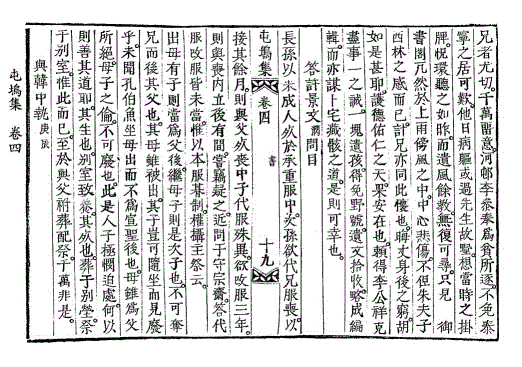 兄者尤切。千萬留意。河邨李參奉爲貧所逐。不免奉
窜之居可歎。他日病軀或過先生故墅。想當時之掛
牌。怳環聽之如昨。而遺風餘敎。無復可尋。只見 御
書閣兀然於上雨傍風之中。中心悲傷。不但朱夫子
西林之感而已。計兄亦同此懷也。晦丈身後之窮。胡
如是甚耶。護德佑仁之天。果安在也。賴得李公祥克
盡事一之誠。一塊遺孩。得免野號。遺文拾收。略成編
輯。而亦謀卜宅藏骸之道。是則可幸也。
答許景文澗問目
長孫以未成人。歿於承重服中。次孫欲代兄服喪。以
屯塢集 卷四 書 十九
接其餘月。則與父歿喪中子代服殊異。欲改服三年。
則與喪內立後有間。嘗竊疑之。近問于守宗齋。答代
服改服皆未當。惟以本服朞制。權攝主祭云。
出母有子則當爲父後。繼母子則是次子也。不可奪
兄而後其父也。其母雖被出。其子豈可隨坐而見廢
乎。未聞孔伯魚坐母出而不爲宣聖後也。母雖爲父
所絶。母子之倫。不可廢也。此是人子極憫迫處。何以
則善其道耶。其生也別室致養。其歿也葬于別塋。祭
于別室。惟此而已。至於與父祔葬配祭。千萬非是。
與韓中執庚辰
屯塢集 卷四